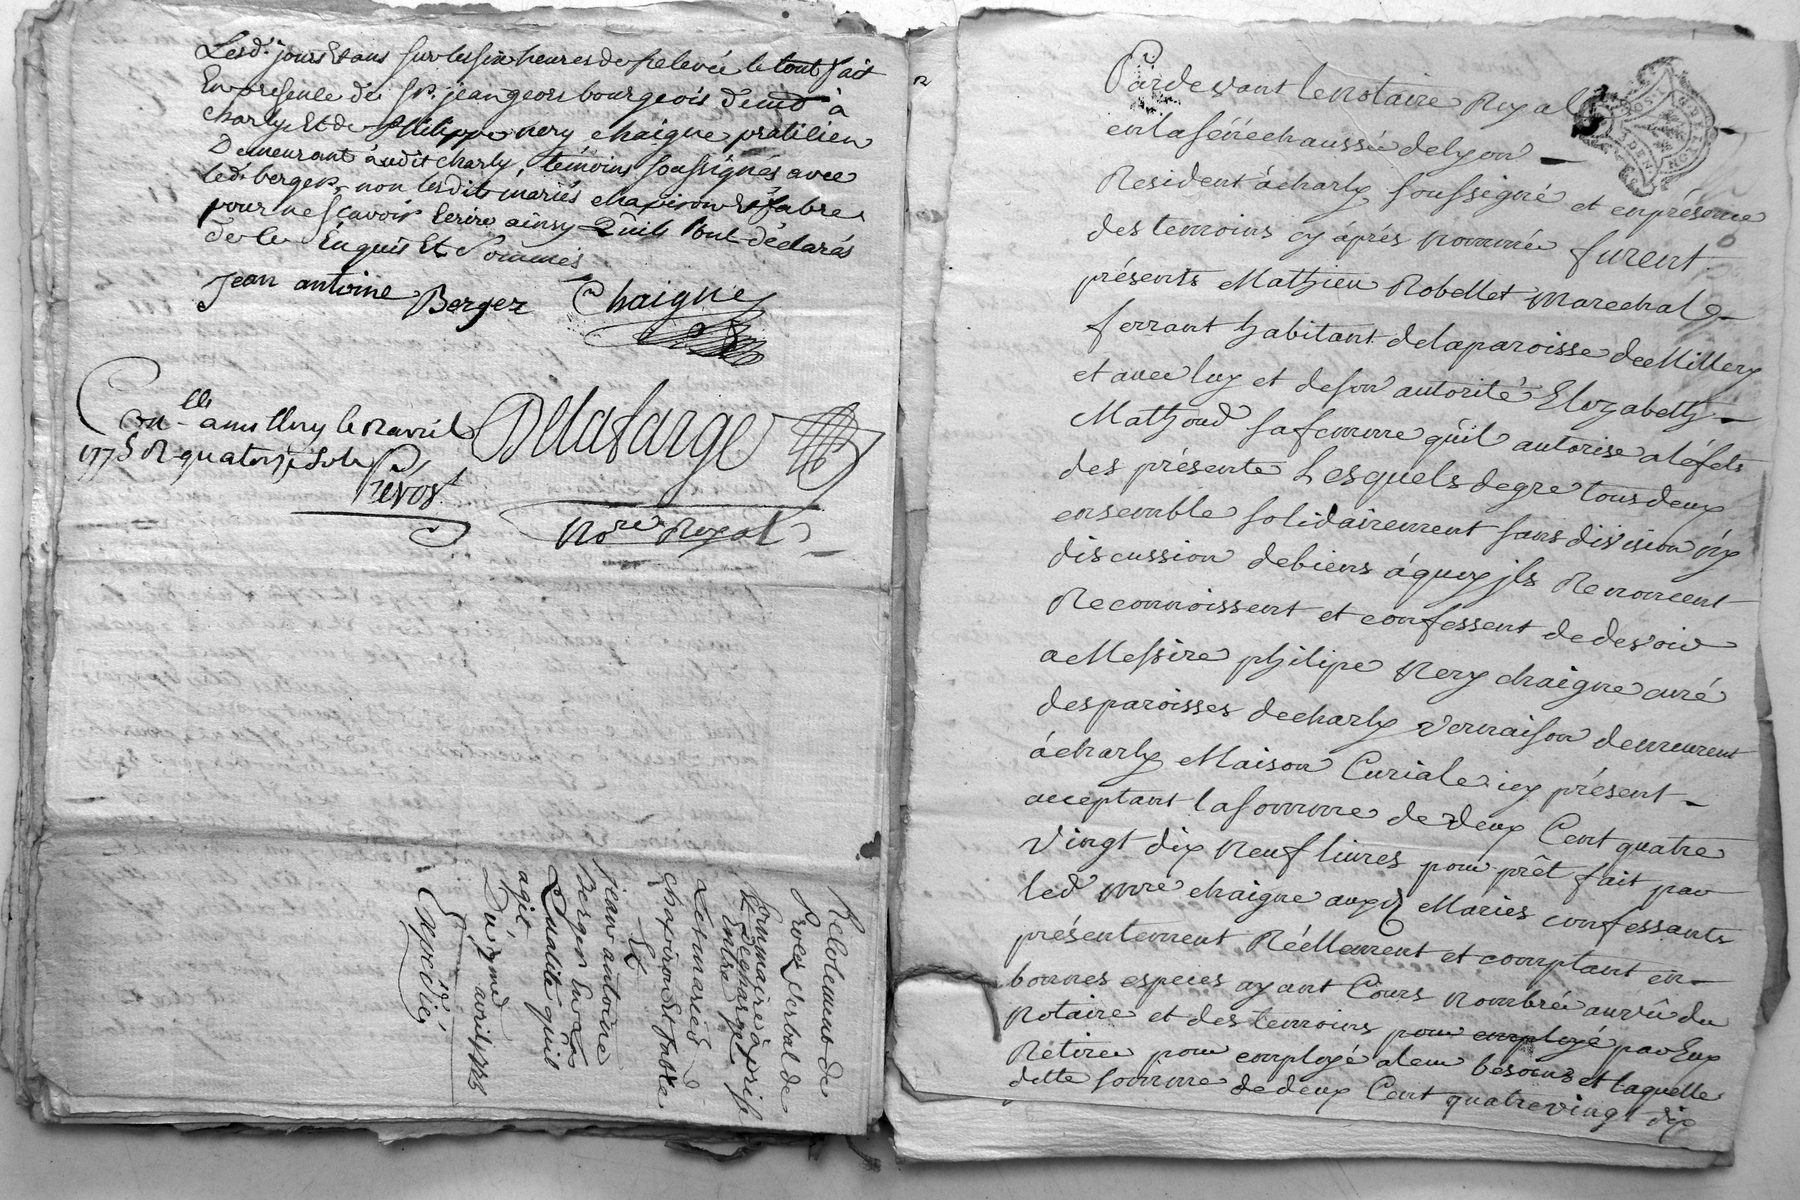 Lesd. jours et ans sur les six heures de relevée le tout fait
En présence de sr. jean geors bourgeois demt à
charly Et de Philippe nery chaigne pratitien
Demeurant audit charly, témoins soussignés avec
led. berger, non lesdits mariés chapiron et fabre
pour ne sçavoir Ecrire ainsy Quils l'ont déclarés
de ce Enquis Et Sommés
Jean antoine Berger Chaigne
Delafarge
Conlle a millery le avril
1775 R quatorze sols
Prevost
Nore Royal
Recolement de
Procés verbal de
sommaire à prise
& decharge
Entre
Les mariés
chapiron Et fabre
Et
jean antoine
Berger En
Qualité qu'il
agit
Du avril 1775
Expédiée
Pardevant le notaire Royal
en la sénéchaussée de lyon
Resident à charly soussigné et en présence
des temoins cy après nommée furent
présents Mathieu Robellet marechal
ferrant habitant de la paroisse de Millery
et avec luy et de son autorité Elizabeth
Mathoud sa femme qu'il autorise a l'éfets
des présente Lesquels de gre tous deux
ensemble solidairement sans division ny
discussion de biens à quoy jls Renoncent
Reconnoissent et confessent de devoir
a Messire philipe Nery chaigne curé
des paroisses de charly Vernaison demeurent
à charly Maison Curiale icy présent
acceptant la somme de deux Cent quatre
Vingt dix neuf livres pour prêt fait par
led mre chaigne auxd Mariés confessants
présentement Réellement et comptant en
bonnes especes ayant Cours nombrée au vû du
Notaire et des temoins pour employé par Eux
Retirée pour employé a leur besoins et laquelle
ditte somme de deux Cent quatre vingt dix